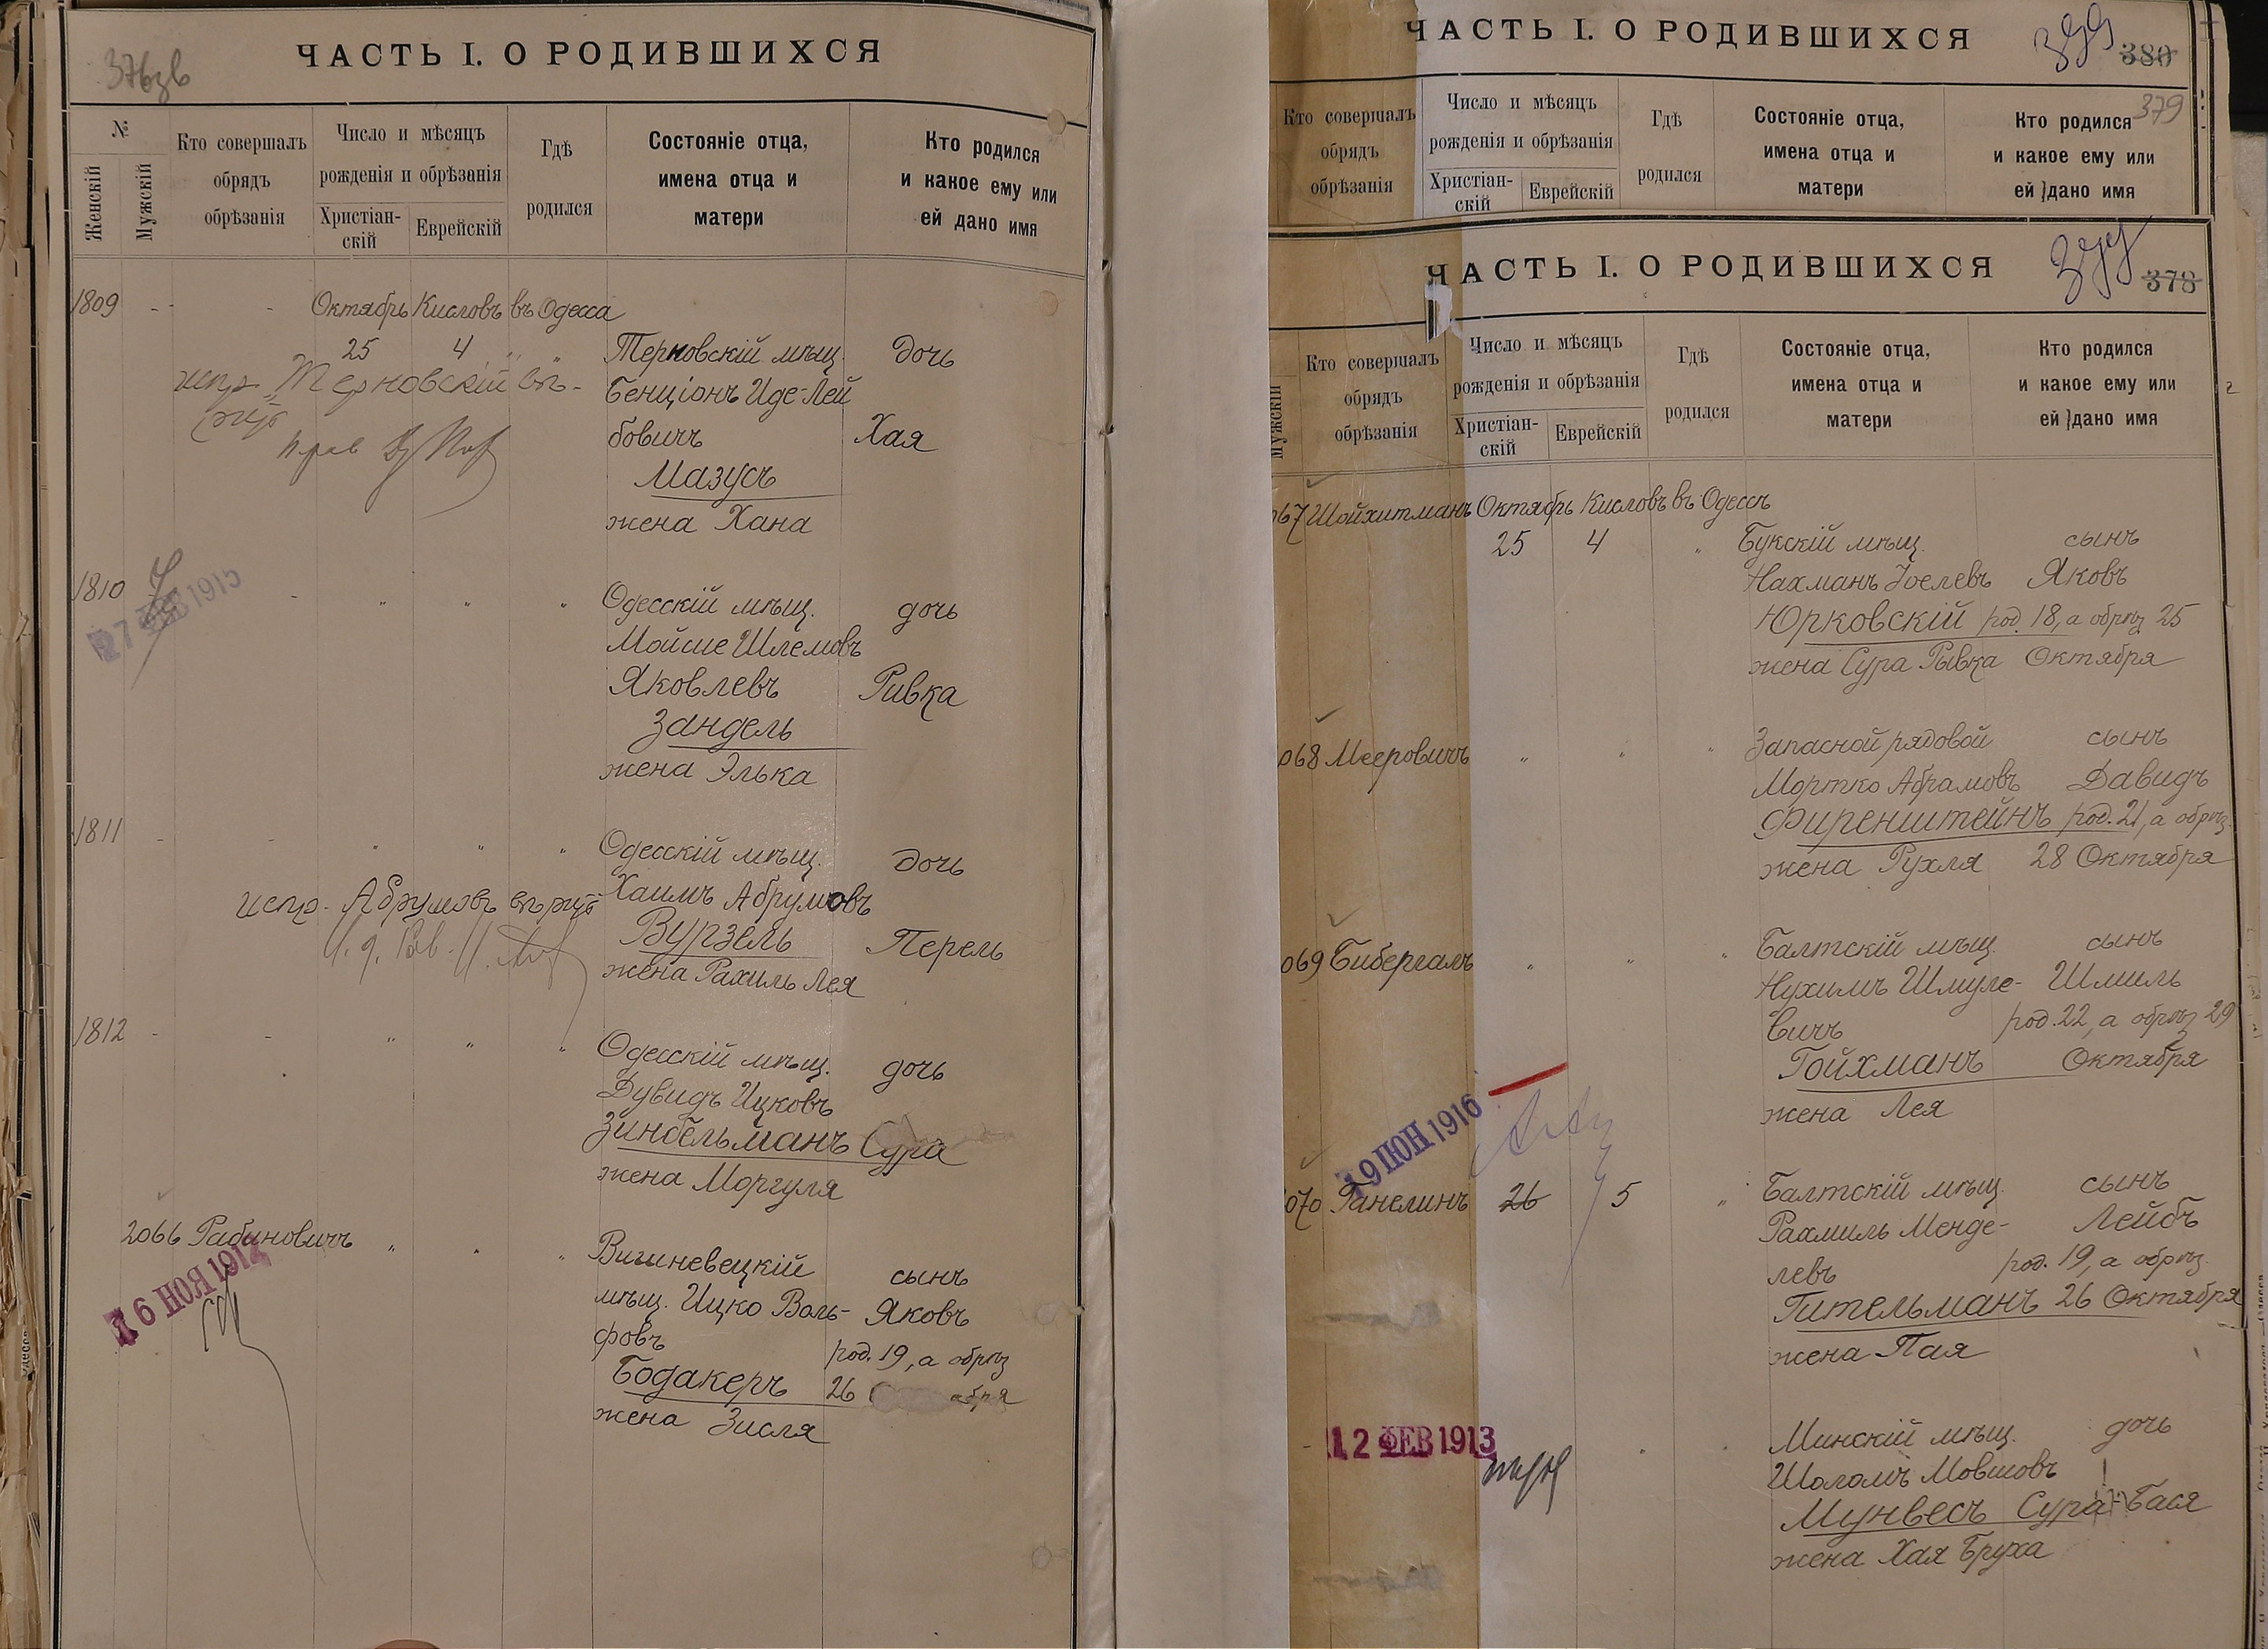 376зв
ЧАСТЬ I. О РОДИВШИХСЯ
№
Женскій
Мужскій
Кто совершалъ
обрядъ
обрѣзанія
Число и мѣсяцъ
рожденія и обрѣзанія
Христіан-
скій
Еврейскій
Гдѣ
родился
Состояніе отца,
имена отца и
матери
Кто родился
и какое ему или
ей дано имя
1809 - - Октябрь Кисловъ въ Одесса
25 4 " " Терновскій мѣщ. дочь
испр. "Терновскій" вѣ-
Бенціонъ Иде-Лей
бовичъ Хая
Мазусъ
жена Хана
1810 - " " " Одесскій мѣщ. дочь
27 ФЕВ 1915
Мойсие Шлемовъ
Яковлевъ Ривка
Зандель
жена Элька
1811 - - " " " Одесскій мѣщ. дочь
Хаимъ Абрумовъ
испр. Абрумовъ
Вурзель Перель
жена Рахиль Лея
1812 - - " " " Одесскій мѣщ. дочь
Дувидъ Ицковъ
Зинбельманъ Сура
жена Моргуля
2066 Рабиновичъ " " " Вишневецкій сынъ
16 НОЯ 1914
мѣщ. Ицко Воль- Яковъ
фовъ род. 19, а обрѣз
Бодакеръ 26 абря
жена Зисля
ЧАСТЬ I. О РОДИВШИХСЯ
380
379
Кто совершалъ
обрядъ
обрѣзанія
Число и мѣсяцъ
рожденія и обрѣзанія
Христіан-
скій
Еврейскій
Гдѣ
родился
Состояніе отца,
имена отца и
матери
Кто родился
и какое ему или
ей дано имя
ЧАСТЬ I. О РОДИВШИХСЯ
378
Мужскій
Кто совершалъ
обрядъ
обрѣзанія
Число и мѣсяцъ
рожденія и обрѣзанія
Христіан-
скій
Еврейскій
Гдѣ
родился
Состояніе отца,
имена отца и
матери
Кто родился
и какое ему или
ей дано имя
067 Шойхитманъ Октябрь Кисловъ въ Одессѣ
25 4 " Букскій мѣщ. сынъ
Нахманъ Іоелевъ Яковъ
Юрковскій род. 18, а обрѣз 25
жена Сура Рывка Октября
068 Мееровичъ " " " Запасной рядовой сынъ
Мортко Абрамовъ Давидъ
Фиренштейнъ род. 21, а обрѣз.
жена Рухля 28 Октября
069 Бибергалъ " " " Балтскій мѣщ. сынъ
Нухимъ Шмуле- Шмиль
вичъ род. 22, а обрѣз 29
Гойхманъ Октября
жена Лея
19 ІЮН 1916
070 Ганелинъ 26 5 " Балтскій мѣщ. сынъ
Рахмиль Менде- Лейбъ
левъ род. 19, а обрѣз.
Гительманъ 26 Октября
жена Пая
- 12 ФЕВ 1913 " " Минскій мѣщ. дочь
Шоломъ Мовшовъ
Мунвесъ Сура-Бася
жена Хая Бруха